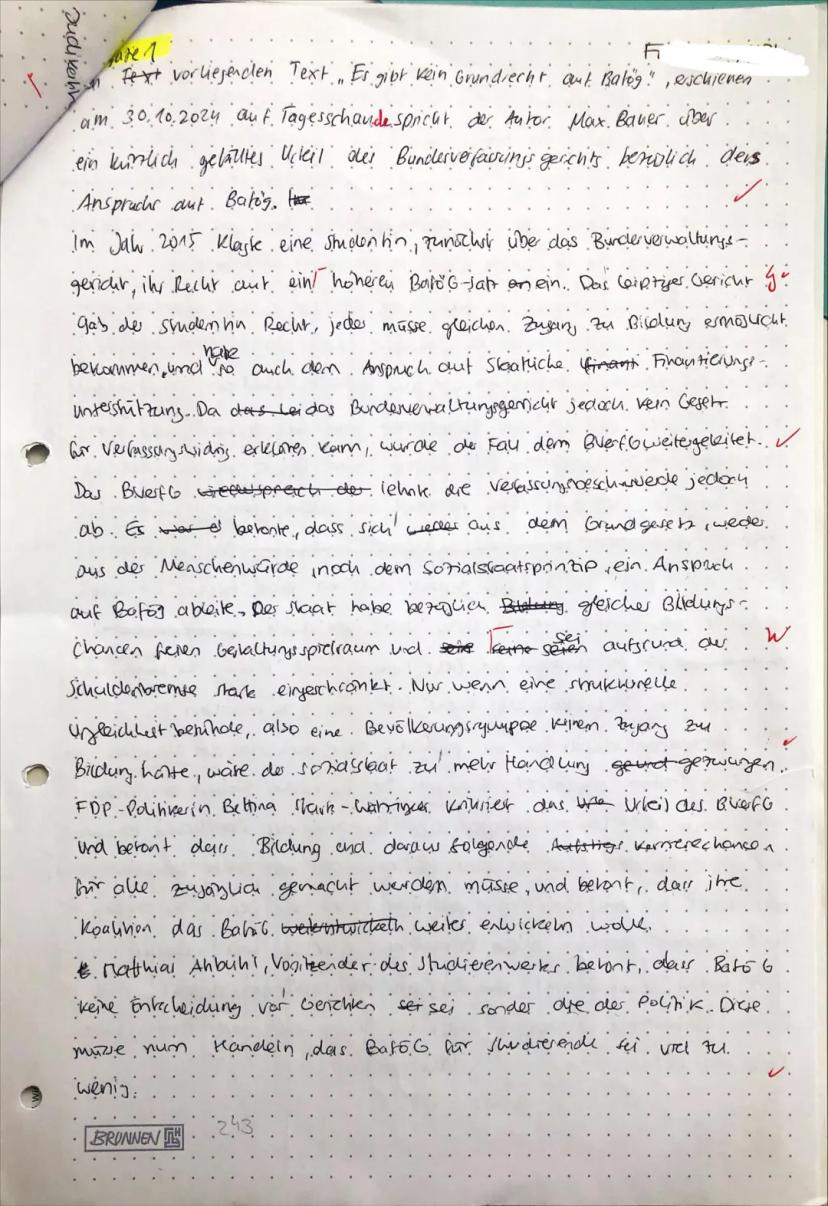 Judikative
Text vorliegenden Text „Es gibt kein Grundrecht auf Bafög", erschienen
am 30.10.2024 auf Tagesschau.de spricht der Autor Max Bauer über
ein kürzlich gefälltes Urteil des Bundesverfassungsgerichts bezüglich des
Anspruchs auf Bafög.
Im Jahr 2015 klagte eine Studentin, zunächst über das Bundesverwaltungs-
gericht, ihr Recht auf ein höheren BaföG-Satz ein. Das Leipziger Gericht
gab der Studentin Recht, jeder müsse gleichen Zugang zu Bildung ermöglicht
bekommen, und habe so auch den Anspruch auf staatliche Finanzierungs-
unterstützung. Da das Bundesverwaltungsgericht jedoch kein Gesetz
für verfassungswidrig erklären kann, wurde der Fall dem BVerfG weitergeleitet.
Das BVerfG lehnte die Verfassungsbeschwerde jedoch
ab. Es betonte, dass sich aus dem Grundgesetz, weder
aus der Menschenwürde, noch dem Sozialstaatsprinzip, ein Anspruch
auf Bafög ableite. Der Staat habe bezüglich Bildung gleicher Bildungs-
chancen freien Gestaltungsspielraum und sei aufgrund der
Schuldenbremse stark eingeschränkt. Nur wenn eine strukturelle
Ungleichheit bestünde, also eine Bevölkerungsgruppe keinen Zugang zu
Bildung hätte, wäre der Sozialstaat zu mehr Handlung gezwungen.
FDP-Politikerin Bettina Stark-Watzinger kritisiert das Urteil des BVerfG
und betont dass Bildung und daraus folgende Karrierechancen
für alle zugänglich gemacht werden müsse, und betont, dass ihre
Koalition das BaföG weiter entwickeln wolle.
Matthias Anbuhl, Vositzender des Studierenwerks betont, dass BaföG
keine Entscheidung vor Gerichten sei sonder die der Politik. Diese
müsse nun Handeln, das BaföG für Studierende sei viel zu
wenig.
BRUNNEN
243